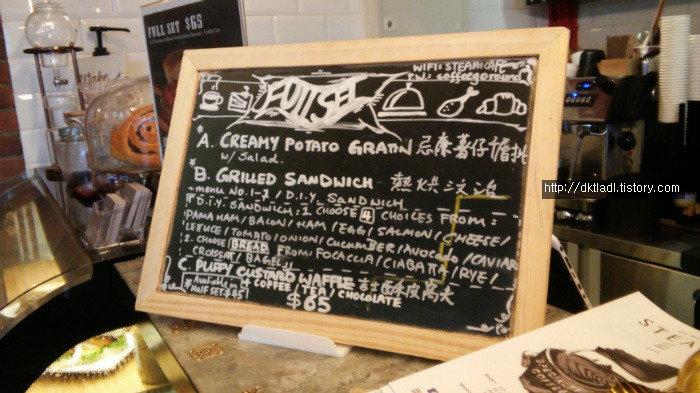 FULL SET $65
WIFI: STEAMCAFE
P.W: coffeeground
FULL SET
A. CREAMY POTATO GRATIN 忌廉薯仔焗批
w/ Salad.
B. GRILLED SANDWICH
menu No.1-7 / D.I.Y. SANDWICH
D.I.Y. SANDWICH: 1. CHOOSE 4 CHOICES FROM:
PAMA HAM/BACON/HAM/EGG/SALMON/CHEESE/
LETTUCE/TOMATO/ONION/CUCUMBER/AVOCADO/CAVIAR
2. CHOOSE BREAD FROM: FOCACCIA/CIABATTA/RYE/
CROISSAT/BAGEL
C. PUFFY CUSTARD WAFFLE
*Available in
HALF SET $45!
+ COFFEE / TEA / CHOCOLATE
$65
http://dktladl.tistory.com
STEA